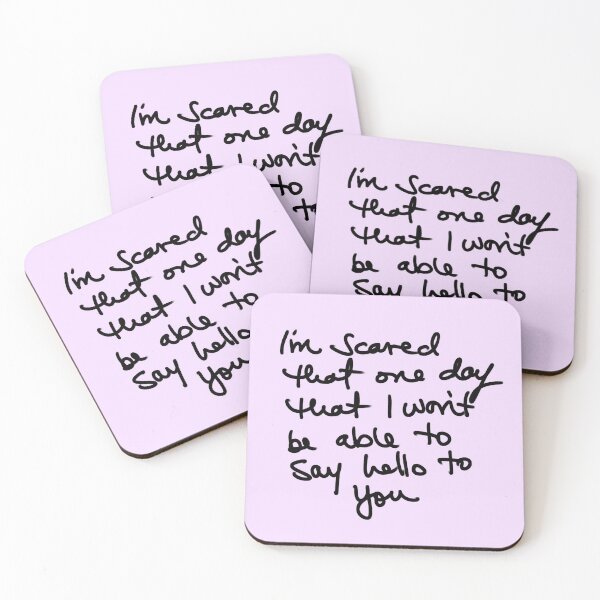 I'm scared
that one day
that I won't
to
to
I'm scared
that one day
that I won't
be able to
say hello to
I'm scared
that one day
that I won't
be able to
say hello
you
I'm scared
that one day
that I won't
be able to
say hello to
you